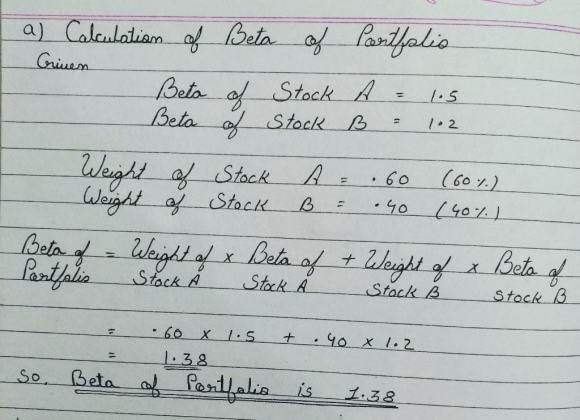 a) Calculation of Beta of Portfolio
Given
Beta of Stock A = 1.5
Beta of Stock B = 1.2
Weight of Stock A = .60 (60%)
Weight of Stock B = .40 (40%)
Beta of = Weight of x Beta of + Weight of x Beta of
Portfolio Stock A Stock A Stock B Stock B
= .60 x 1.5 + .40 x 1.2
= 1.38
So, Beta of Portfolio is 1.38